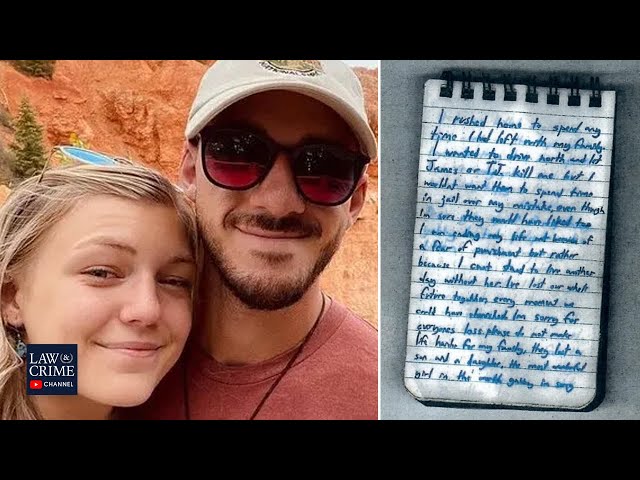 LAW &
CRIME
CHANNEL
I rushed home to spend any
time I had left with my family.
I wanted to drive north and let
James or TJ kill me but I
wouldnt want them to spend time
in jail over my mistake, even though
Im sure they would have liked too
I am ending my life not because of
a fear of punishment but rather
because I cant stand to live another
day without her. Ive lost our whole
future together, every moment we
could have cherished. Im sorry for
everyones loss. please do not make
life harder for my family, they lost a
son and a daughter. the most wonderful
girl in the world. Gabby im sorry